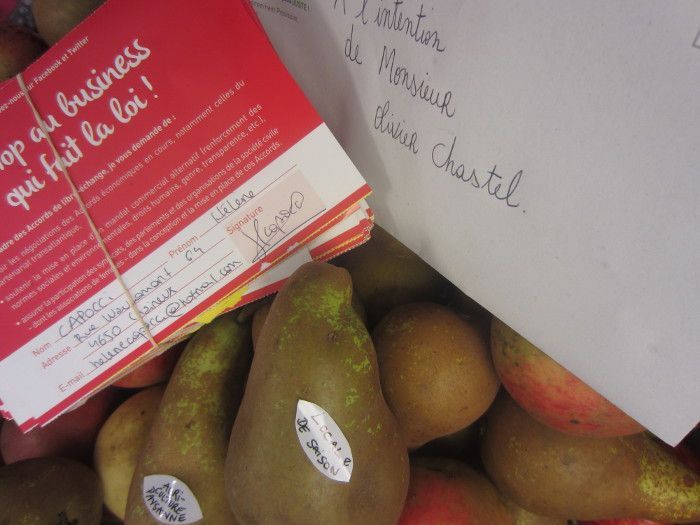 vez-nous sur Facebook et Twitter
op au business
qui fait la loi !
dre des Accords de libre-échange, je vous demande de :
les négociations des Accords économiques en cours, notamment celles du
partenariat transatlantique.
• soutenir la mise en place d'un mandat commercial alternatif (renforcement des
normes sociales et environnementales, droits humains, genre, transparence, etc.).
• assurer la participation des syndicats, des parlements et des organisations de la société civile
- dont les associations de femmes - dans la conception et la mise en place de ces Accords.
Nom CAPOCCI Prénom Hélène
Adresse Rue 64
4650 Chaineux
E-mail
Signature
A l'intention
de Monsieur
Olivier Chastel.
LOCALE
DE SAISON
AGRI-
CULTURE
PAYSANNE